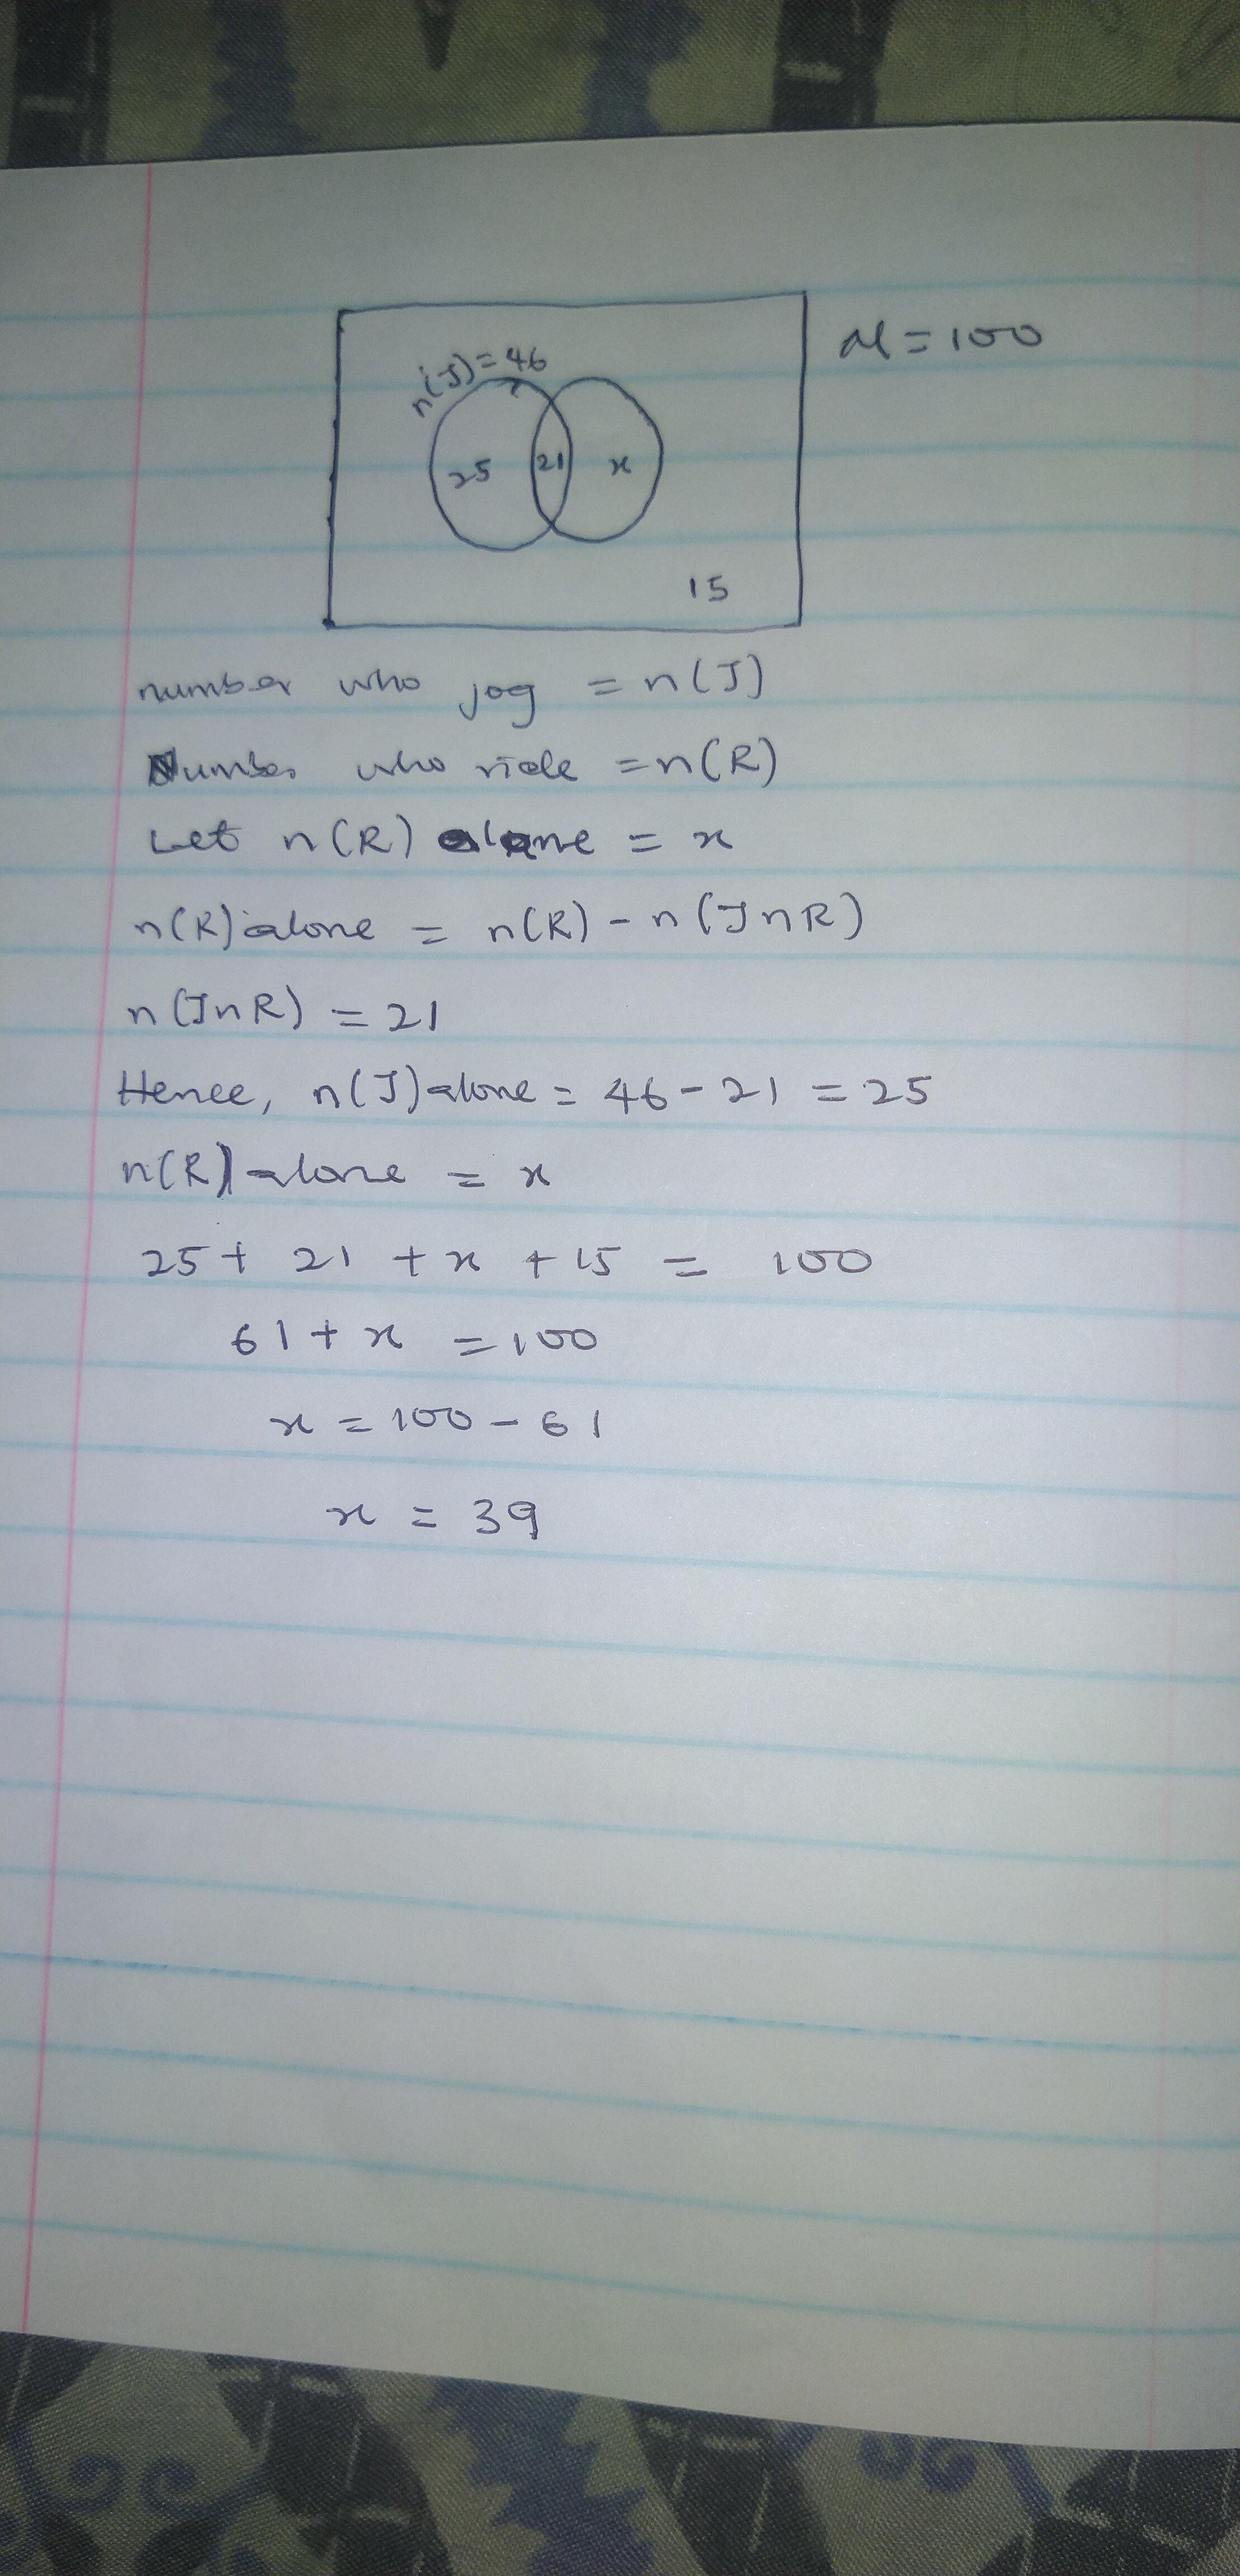 n(J)=46
μ=100
25 21 x
15
number who jog = n(J)
Number who ride = n(R)
Let n(R) alone = x
n(R) alone = n(R) - n(J∩R)
n(J∩R) = 21
Hence, n(J) alone = 46 - 21 = 25
n(R) alone = x
25 + 21 + x + 15 = 100
61 + x = 100
x = 100 - 61
x = 39